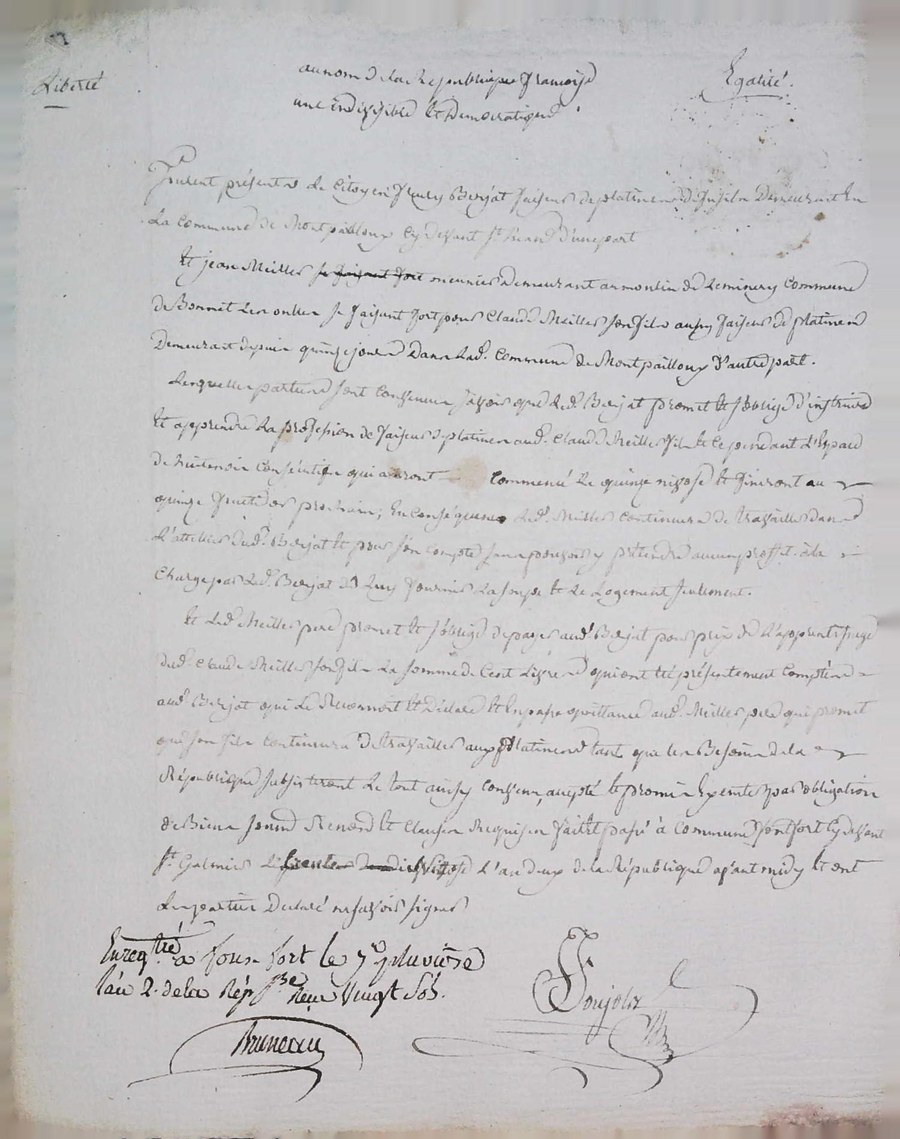 Liberté
Egalité.
au nom de la Republique francoise
une indivisible et Democratique
furent présents le Citoyen fleury Berjat faiseur de platines de fusils Demeurant en
La Commune de Montpailloux Cydevant St d'une part
Et jean Meiller se faisant fort meunier demeurant au moulin de Commune
de Bonnet Les oulles se faisant fort pour Claude Meiller son fils aussy faiseur de platines
Demeurant depuis quinze jours Dans Lad. Commune de Montpailloux d'autre part.
Lesquelles parties sont Convenues savoir que Led. Berjat promet et s'oblige d'instruire
Et apprendre La profession de faiseur de platines aud. Claude Meiller fils et ce pendant L'Espace
de huit mois Consécutifs qui auront commencé Le quinze nivose et finiront au
quinze fructidor prochain; En Conséquence Led. Meiller Continuera de travailler dans
L'attelier dud. Berjat et pour son compte sans pouvoir y prétendre aucun profit à la
Charge par Led. Berjat de Luy fournir La soupe et Le Logement seulement.
Et Led. Meiller pere promet et s'oblige de payer aud. Berjat pour prix de L'apprentissage
dud. Claude Meiller son fils La somme de Cent Livres qui ont été présentement Comptées
aud. Berjat qui Le Reconnoit et Déclare et En passe quittance aud. Meiller pere qui promet
que son fils continuera de travailler aux platines tant que les Besoins de la
République subsisteront Le tout ainsy Convenu, accepté et promis Executer par obligation
de Biens Renond et Clauses Requises fait et passé à Commune fontfort Cydevant
St. Galmier Le nivose L'an deux de la République après midy et ont
Les parties Declaré ne savoir signer
Enregtré à fons-fort le 7 pluviôse
l'an 2. de la Rép.que Reçu Vingt Sols.
Ponjolix
Bruneau